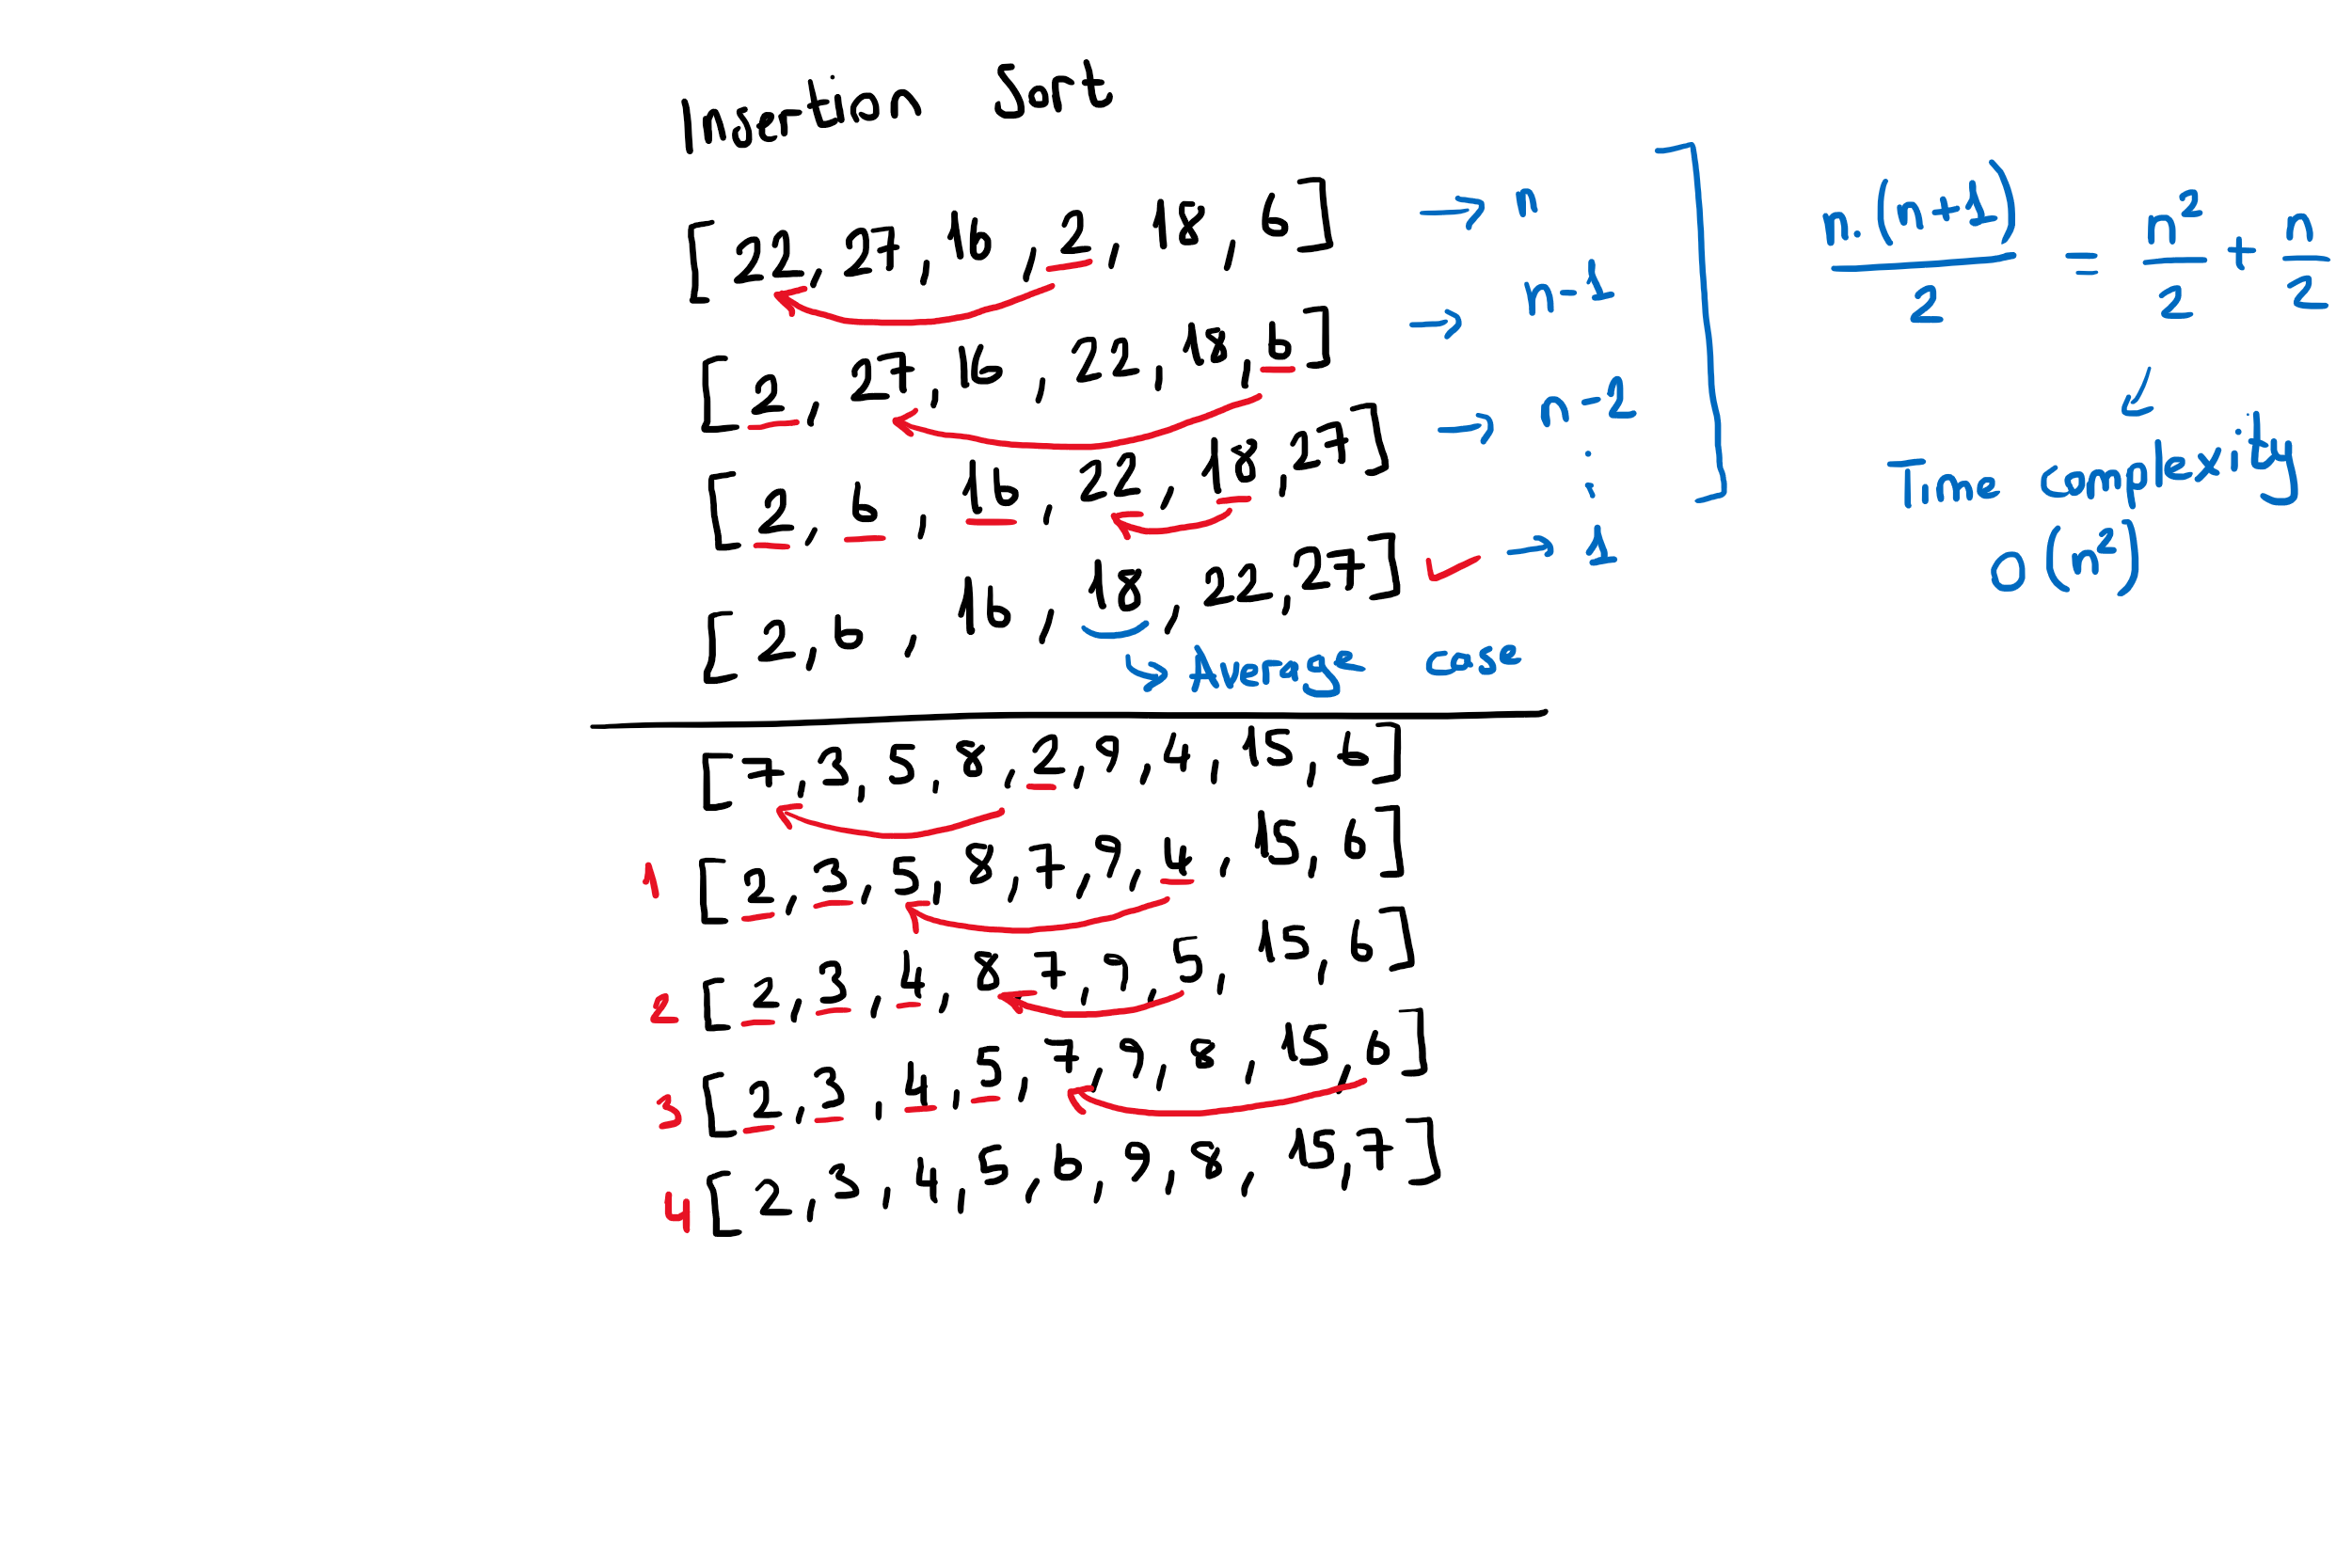 Insertion Sort
[22, 27, 16, 2, 18, 6] → n
[2, 27, 16, 22, 18, 6] → n-1
[2, 6, 16, 22, 18, 27] → n-2
:
[2, 6, 16, 18, 22, 27] ✓ → 1
↳ Average case
n.(n+1)/2 = n²/2 + n/2
↙
Time complexity
O(n²)
[7, 3, 5, 8, 2, 9, 4, 15, 6]
1 [2, 3, 5, 8, 7, 9, 4, 15, 6]
2 [2, 3, 4, 8 7, 9, 5, 15, 6]
3 [2, 3, 4, 5, 7, 9, 8, 15, 6]
4 [2, 3, 4, 5, 6, 9, 8, 15, 7]